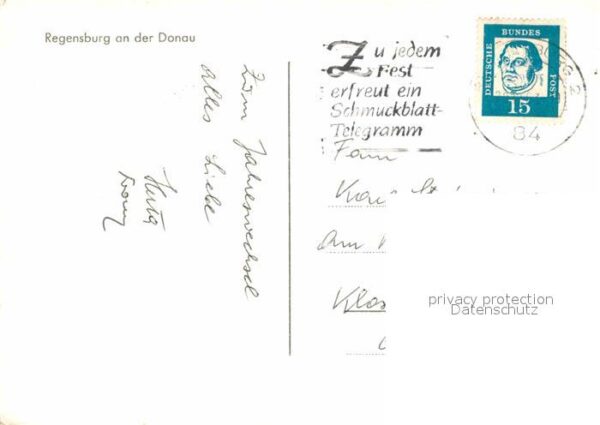 Regensburg an der Donau
Zum Jahreswechsel
Alles Liebe
Herta
Zu jedem
Fest
erfreut ein
Schmuckblatt-
Telegramm
DEUTSCHE BUNDESPOST
15
84
2
Fam
Am
privacy protection
Datenschutz